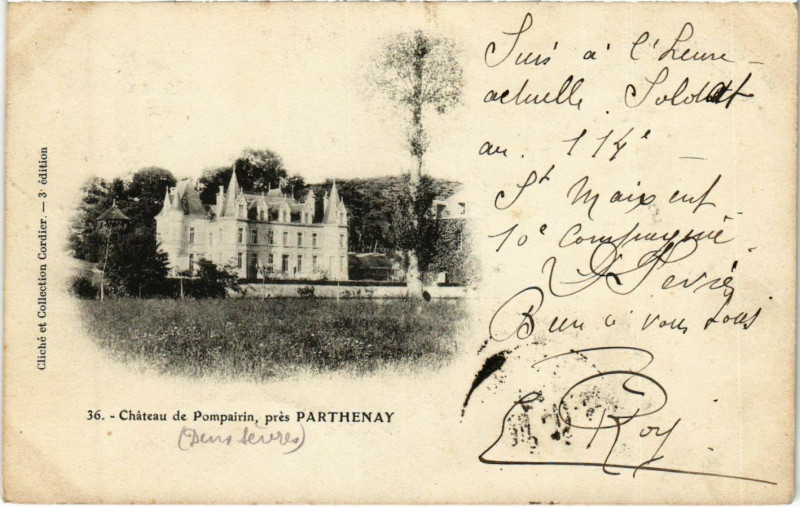 Suis à l'heure
actuelle Soldat
au 114e
St Maixent
10e Compagnie
D. Sevres
Bien à vous tous
Roy
Cliché et Collection Cordier. — 3e édition
36. - Château de Pompairin, près PARTHENAY
(Deux Sèvres)